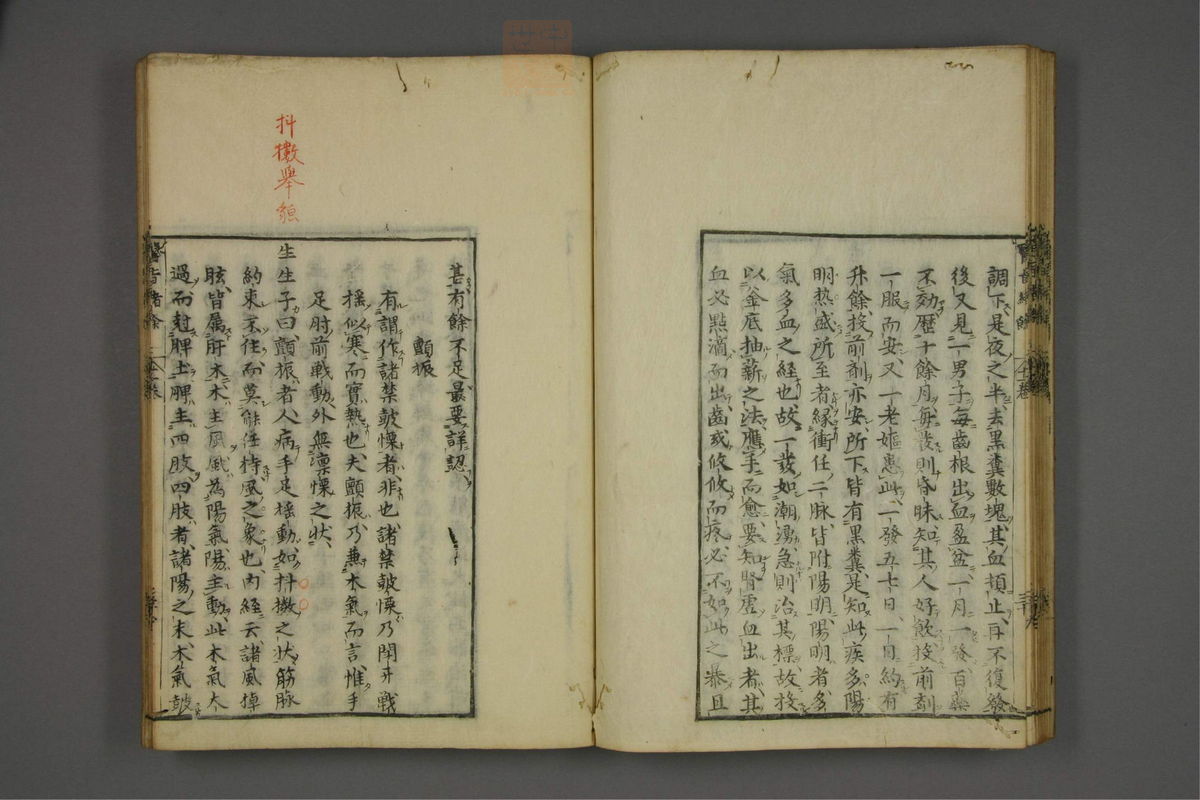 調下是夜之半去黒糞數塊其血頓止再不復發
後又見一男子每齒根出血盈盆一月一發百藥
不効歷十餘月每發則昏昧知其人好飲投前剤
一服而安又一老嫗患此一發五七日一日約有
升餘投前剤亦安所下皆有黒糞是知此疾多陽
明熱盛所至者縁衝任二脉皆附陽明陽明者多
氣多血之經也故一發如潮湧急則治其標故投
以釜底抽薪之法應手而愈要知腎虛血出者其
血必點滴而出齒或攸攸而疼必不如此之暴且
甚有餘不足最要詳認
顫振
有謂作諸禁鼓慄者非也諸禁鼓慄乃閉牙戰
揺似寒而實熱也夫顫振乃兼木氣而言惟手
足肘前戰動外無凛慄之状
生生子曰顫振者人病手足揺動如抖擻之状筋脉
約束不住而莫能任持風之象也内經云諸風掉
眩皆属肝木木主風風為陽氣陽主動此木氣太
過而尅脾土脾主四肢四肢者諸陽之末木氣鼓
抖擻舉